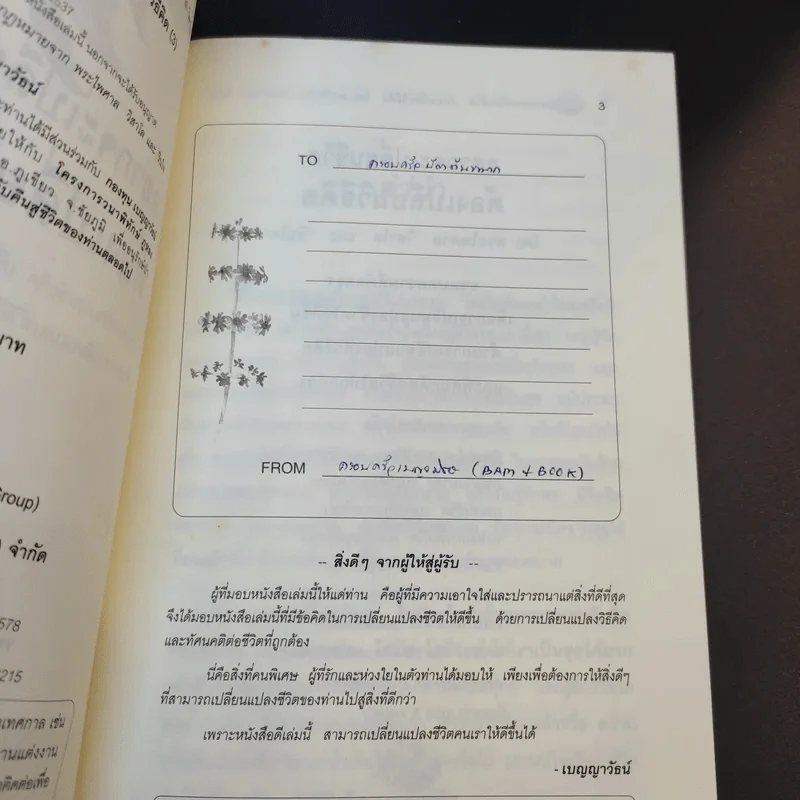 537
วิธีคิด (3)
หนังสือเล่มนี้ นอกจากจะได้รับอนุญาต
กฎหมายจาก พระไพศาล วิสาโล และ
าวัธน์
ะท่านได้มีส่วนร่วมกับ กองทุน เบญญาวัธน์
ยให้กับ โครงการวนาพิทักษ์ ภูหลง
อ.ภูเขียว จ.ชัยภูมิ เพื่ออนุรักษ์ป่า
บคืนสู่ชีวิตของท่านตลอดไป
บาท
Group)
จำกัด
578
215
เทศกาล เช่น
านแต่งงาน
ติดต่อเพื่อ
3
TO ครอบครัว
FROM ครอบครัวเบญจ (BAM + BOOK)
-- สิ่งดีๆ จากผู้ให้สู่ผู้รับ --
ผู้ที่มอบหนังสือเล่มนี้ให้แด่ท่าน คือผู้ที่มีความเอาใจใส่และปรารถนาแต่สิ่งที่ดีที่สุด
จึงได้มอบหนังสือเล่มนี้ที่มีข้อคิดในการเปลี่ยนแปลงชีวิตให้ดีขึ้น ด้วยการเปลี่ยนแปลงวิธีคิด
และทัศนคติต่อชีวิตที่ถูกต้อง
นี่คือสิ่งที่คนพิเศษ ผู้ที่รักและห่วงใยในตัวท่านได้มอบให้ เพียงเพื่อต้องการให้สิ่งดีๆ
ที่สามารถเปลี่ยนแปลงชีวิตของท่านไปสู่สิ่งที่ดีกว่า
เพราะหนังสือดีเล่มนี้ สามารถเปลี่ยนแปลงชีวิตคนเราให้ดีขึ้นได้
- เบญญาวัธน์